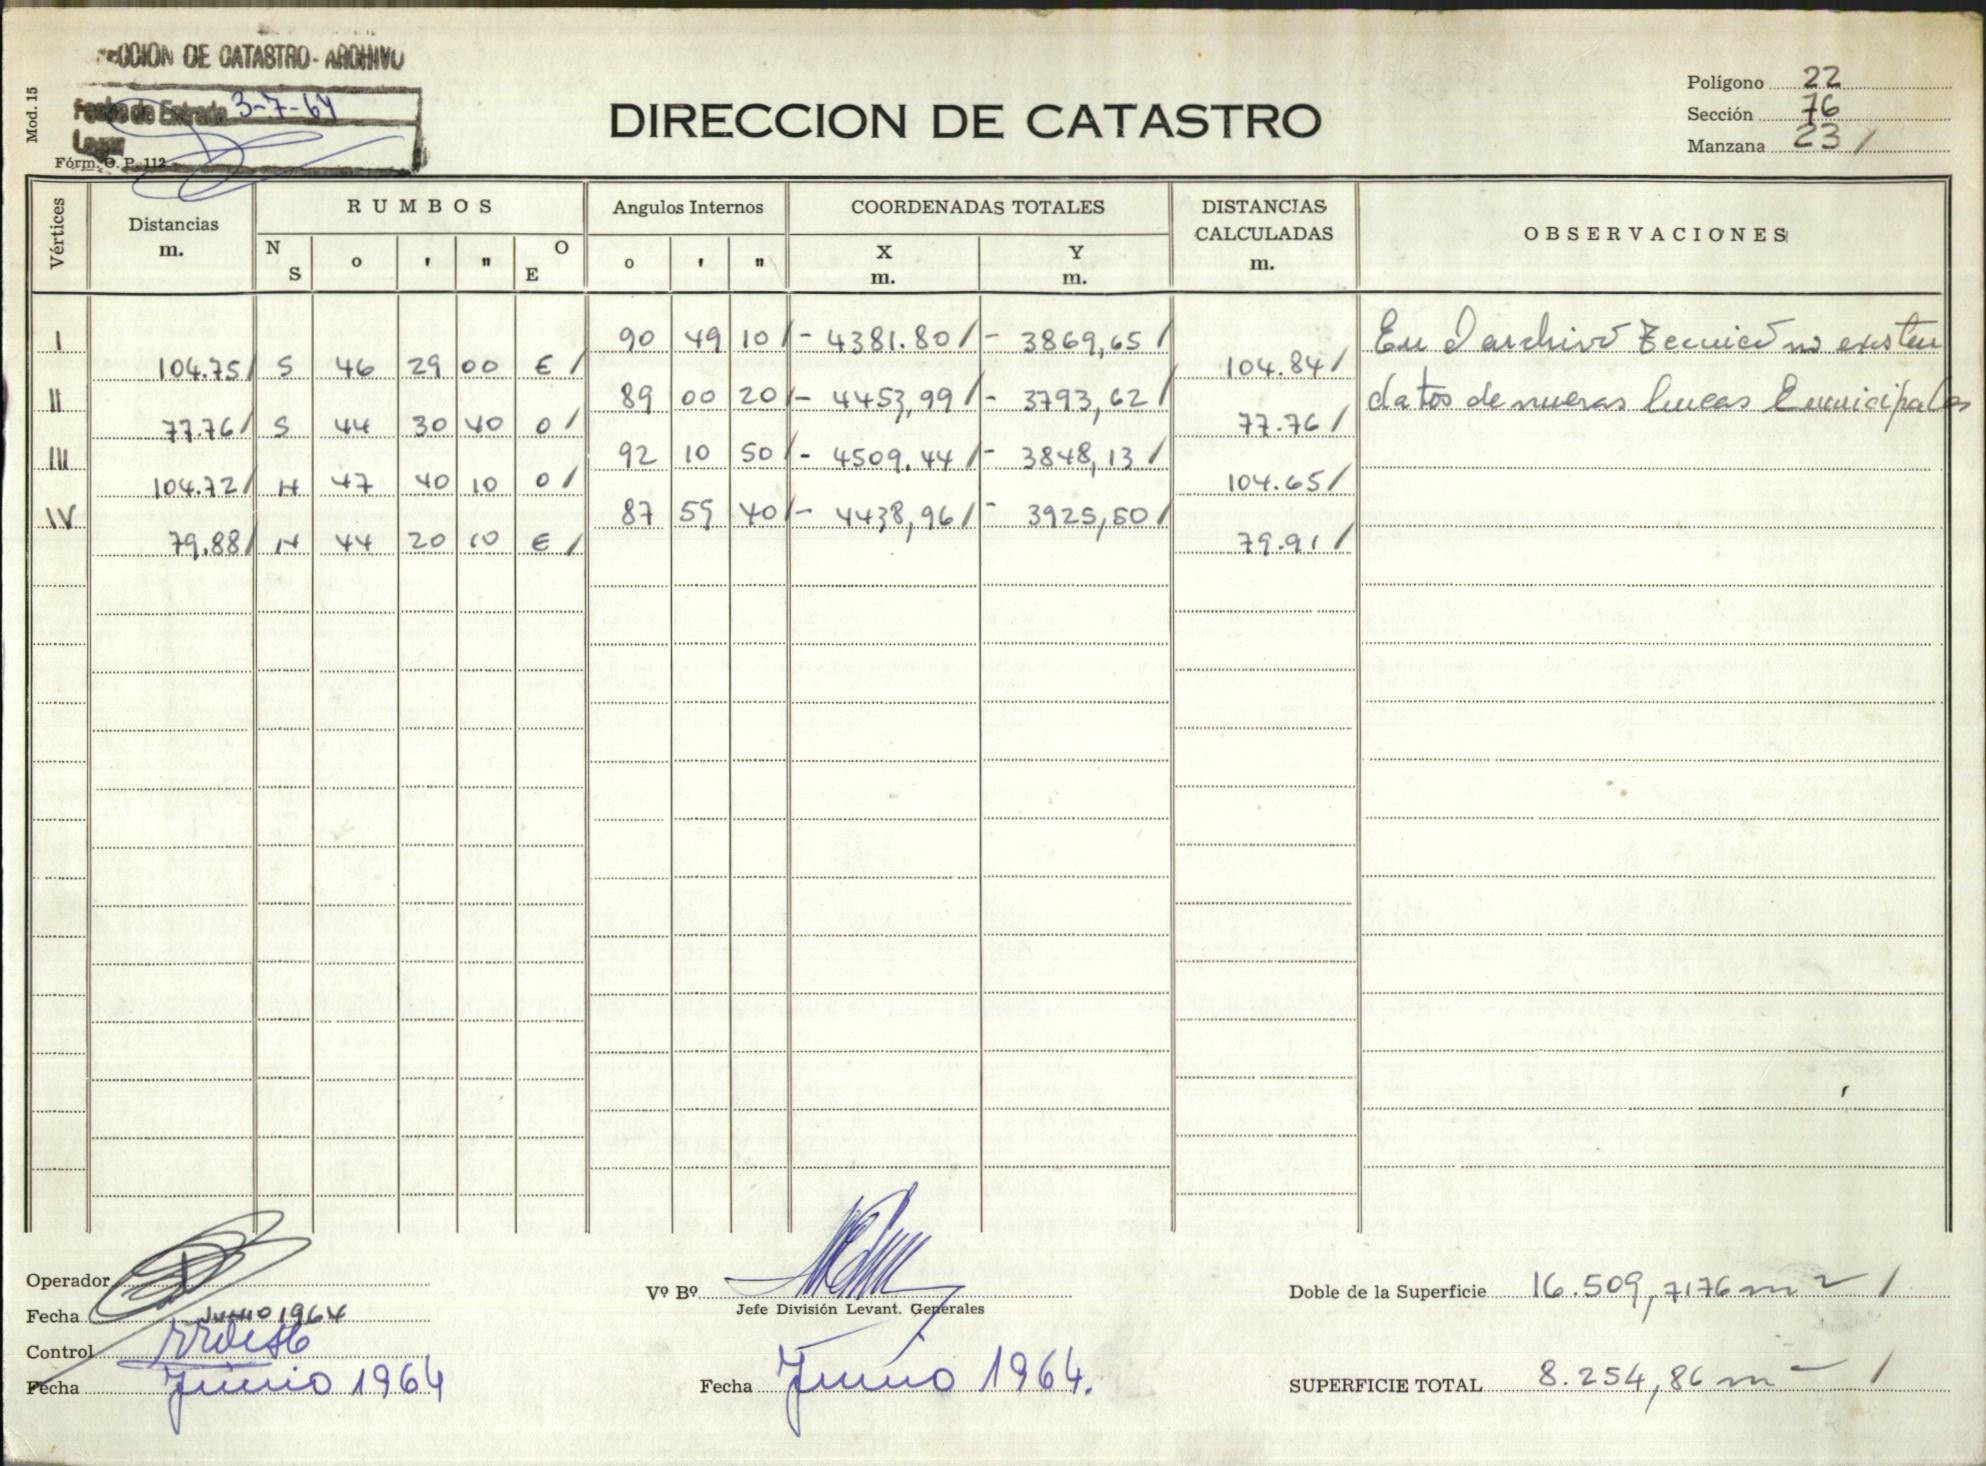 CCION DE CATASTRO - ARCHIVO
Fecha de Entrada 3-7-64
Mod. 15
Fórm. O. P. 112
DIRECCION DE CATASTRO
Polígono 22
Sección 76
Manzana 23 /
Vértices
Distancias
m.
RUMBOS
N S ° ' " O E
Angulos Internos
° ' "
COORDENADAS TOTALES
X Y
m. m.
DISTANCIAS
CALCULADAS
m.
OBSERVACIONES
I 90 49 10 / - 4381.80 / - 3869,65 / archivo no existen
104.75 / S 46 29 00 E / 104.84 /
II 89 00 20 / - 4453,99 / - 3793,62 / datos de nuevas lineas municipales
77.76 / S 44 30 40 O / 77.76 /
III 92 10 50 / - 4509.44 / - 3848,13 /
104.72 / N 47 40 10 O / 104.65 /
IV 87 59 40 / - 4438,96 / - 3925,50 /
79.88 / N 44 20 10 E / 79.91 /
Operador
Fecha Junio 1964
Control
Fecha Junio 1964
Vº Bº
Jefe División Levant. Generales
Fecha Junio 1964.
Doble de la Superficie 16.509,7176 m2 /
SUPERFICIE TOTAL 8.254,86 m2 /